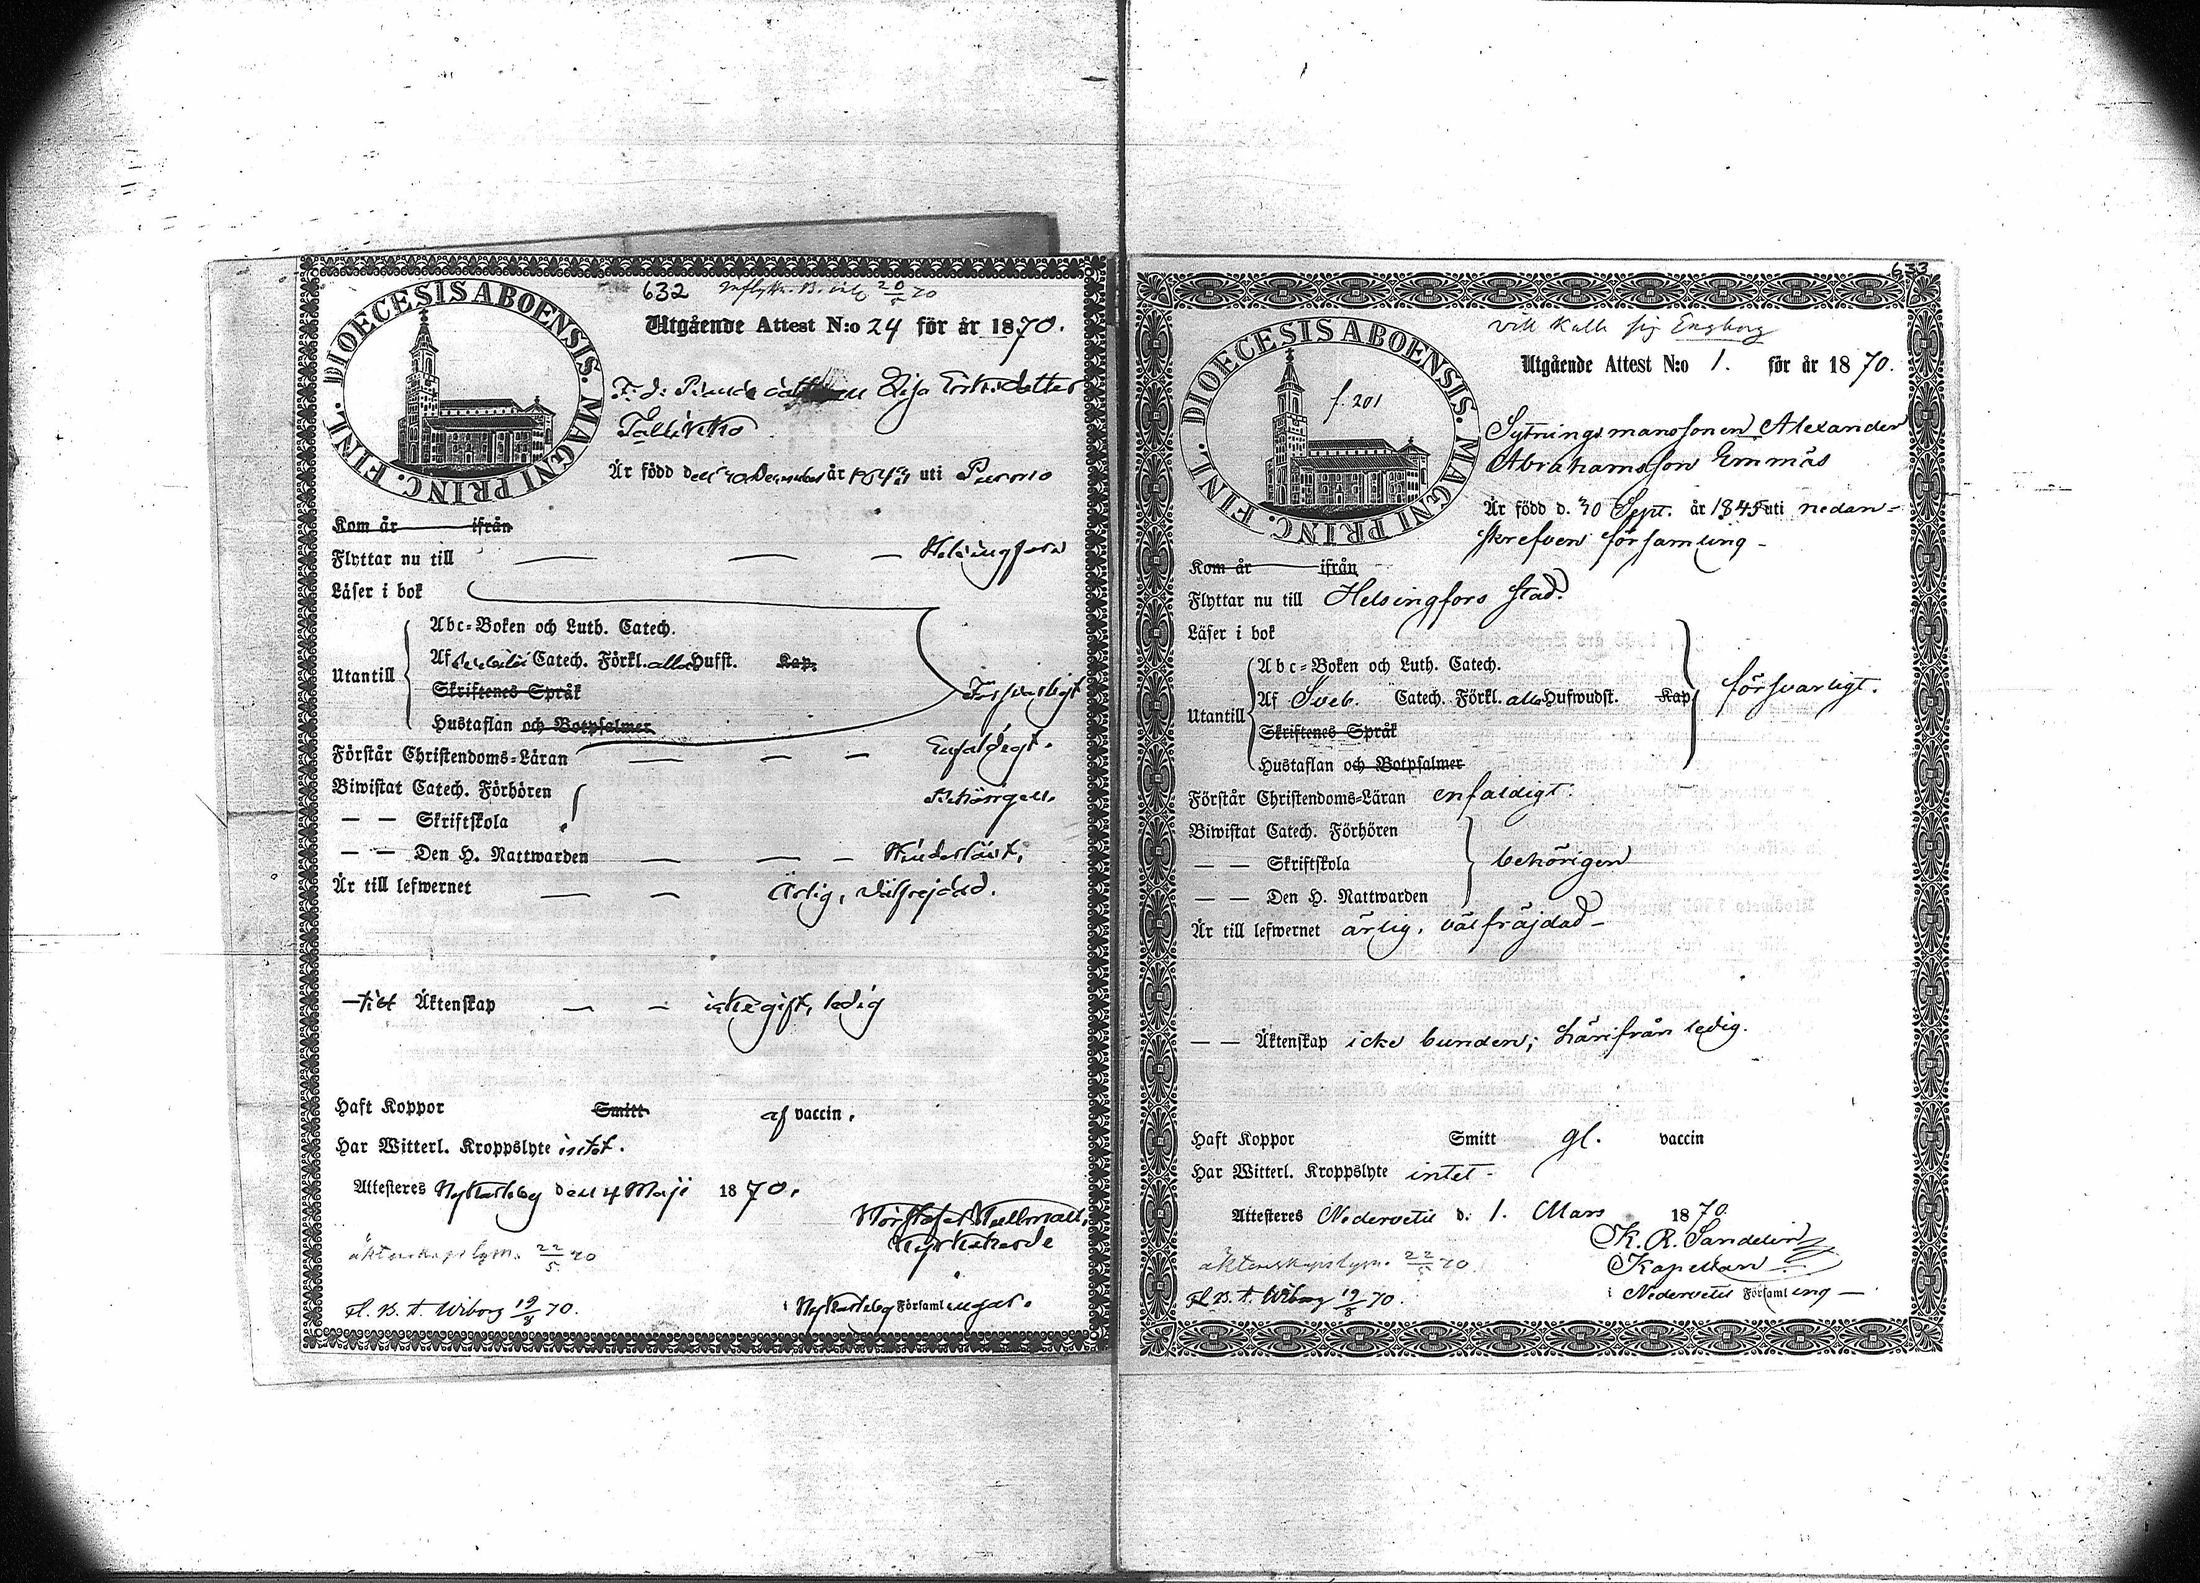 632
20/5 70
DIOECESIS ABOENSIS. MAGNI PRINC. FINL.
Utgående Attest N:o 24 för år 1870.
F. d. Lisa Ersdotter
Är född den December år uti Purmo
Kom år ifrån
Flyttar nu till Helsingfors
Läser i bok
Abc-Boken och Luth. Catech.
Utantill
Af Catech. Förkl. alla Hufst. Kap.
Skriftenes Språk
Hustaflan och Botpsalmer
Försvarligt
Förstår Christendoms-Läran Enfaldigt.
Biwistat Catech. Förhören Behörigen.
— — Skriftskola
— — Den H. Nattwarden
Är till lefwernet Ärlig, välfrejdad.
till Äktenskap icke gift, ledig
Haft Koppor Smitt af vaccin.
Har Witterl. Kroppslyte intet.
Attesteres Nykarleby den 4 Maji 1870.
Kyrkoherde
äktenskapslysn. 22/5 70
i Nykarleby Församlingar.
Fl. B. t. Wiborg 19/8 70.
633
vill kalla sig Engborg
DIOECESIS ABOENSIS. MAGNI PRINC. FINL.
f. 201
Utgående Attest N:o 1. för år 1870.
Sytningsmanssonen Alexander
Abrahamsson Emmäs
Är född d. 30 Sept. år 1845 uti nedan-
skrefven församling -
Kom år ifrån
Flyttar nu till Helsingfors stad.
Läser i bok
Abc-Boken och Luth. Catech.
Utantill
Af Sveb. Catech. Förkl. alla Hufwudst. Kap
försvarligt.
Skriftenes Språk
Hustaflan och Botpsalmer
Förstår Christendoms-Läran enfaldigt.
Biwistat Catech. Förhören
— — Skriftskola behörigen
— — Den H. Nattwarden
Är till lefwernet ärlig, välfräjdad -
— — Äktenskap icke bunden; härifrån ledig.
Haft Koppor Smitt gl. vaccin
Har Witterl. Kroppslyte intet -
Attesteres Nedervetil d. 1. Mars 1870
K. R. Sandelin
Kapellan
äktenskapslysn. 22/5 70
i Nedervetil Församling —
Fl. B. t. Wiborg 19/8 70.